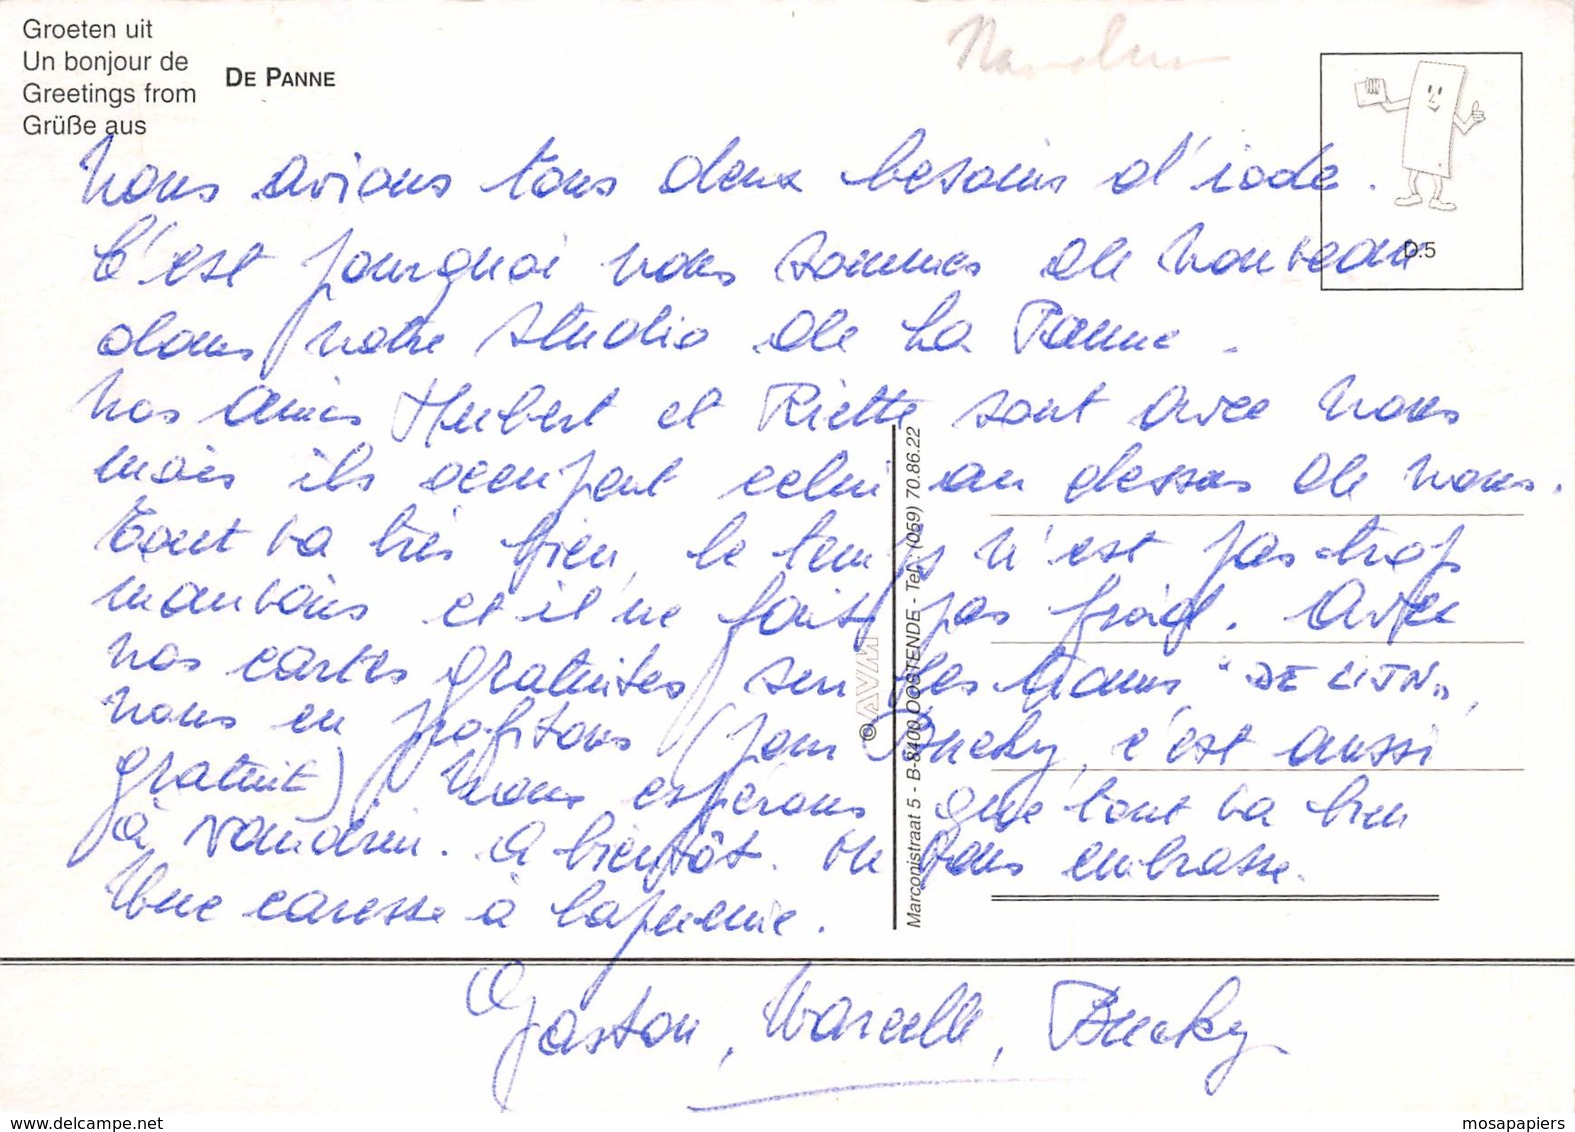 Groeten uit
Un bonjour de
Greetings from
Grüße aus
DE PANNE
D.5
Nous avions tous deux besoins d'iode.
C'est pourquoi nous sommes de nouveau
dans notre studio de La Panne.
Nos amis Hubert et Riette sont avec nous
mais ils occupent celui au dessus de nous.
Tout va très bien, le temps n'est pas trop
mauvais et il ne fait pas froid. Avec
nos cartes gratuites sur les trams "DE LIJN",
nous en profitons (pour Bucky, c'est aussi
gratuit). Nous espérons que tout va bien
à Nandrin. A bientôt. On vous embrasse.
Une caresse à la
Gaston, Marcelle, Bucky
© AVM
Marconistraat 5 - B-8400 OOSTENDE - Tel.: (059) 70.86.22
delcampe.net
mosapapiers